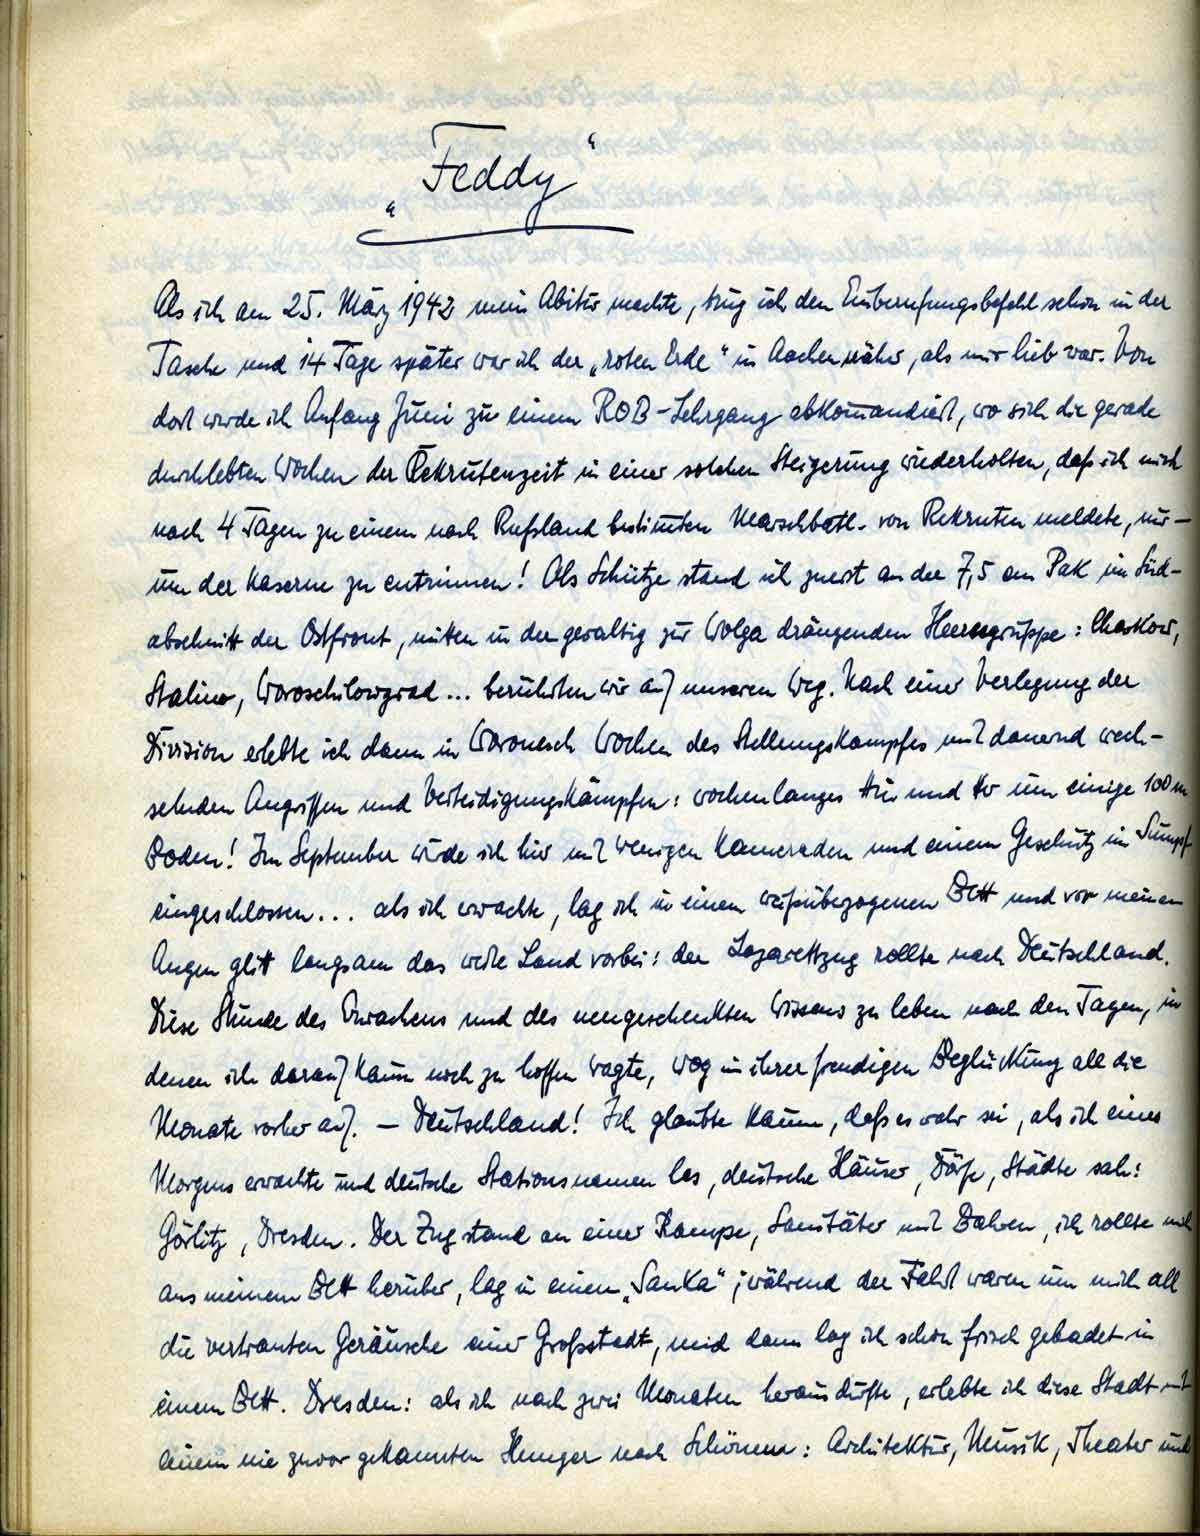 „Feddy“
Als ich am 25. März 1942 mein Abitur machte, trug ich den Einberufungsbefehl schon in der
Tasche und 14 Tage später war ich der „roten Erde“ in Aachen näher, als mir lieb war. Von
dort wurde ich Anfang Juni zu einem ROB-Lehrgang abkommandiert, wo sich die gerade
durchlebten Wochen der Rekrutenzeit in einer solchen Steigerung wiederholten, daß ich mich
nach 4 Tagen zu einem nach Rußland bestimmten Marschbatl. von Rekruten meldete, nur –
um der Kaserne zu entrinnen! Als Schütze stand ich zuerst an der 7,5 cm Pak im Süd-
abschnitt der Ostfront, mitten in der gewaltig zur Wolga drängenden Heeresgruppe: Charkow,
Stalino, Woroschilowgrad ... berührten wir auf unserem Weg. Nach einer Verlegung der
Division erlebte ich dann in Woronesch Wochen des Stellungskampfes mit dauernd wech-
selnden Angriffen und Verteidigungskämpfen: wochenlanges Hin und Her um einige 100 m
Boden! Im September wurde ich hier mit wenigen Kameraden und einem Geschütz im Sumpf
eingeschlossen... als ich erwachte, lag ich in einem weißüberzogenen Bett und vor meinen
Augen glitt langsam das weite Land vorbei: der Lazarettzug rollte nach Deutschland.
Diese Stunde des Erwachens und des neugeschenkten Wissens zu leben nach den Tagen, in
denen ich darauf kaum noch zu hoffen wagte, wog in ihrer freudigen Beglückung all die
Monate vorher auf. – Deutschland! Ich glaubte kaum, daß es wahr sei, als ich eines
Morgens erwachte und deutsche Stationsnamen las, deutsche Häuser, Dörfer, Städte sah:
Görlitz, Dresden. Der Zug stand an einer Rampe, Sanitäter mit Bahren, ich rollte mich
aus meinem Bett herüber, lag in einem „Sanka“; während der Fahrt waren um mich all
die vertrauten Geräusche einer Großstadt, und dann lag ich schon frisch gebadet in
einem Bett. Dresden: als ich nach zwei Monaten heraus durfte, erlebte ich diese Stadt mit
einem nie zuvor gekannten Hunger nach Schönem: Architektur, Musik, Theater und